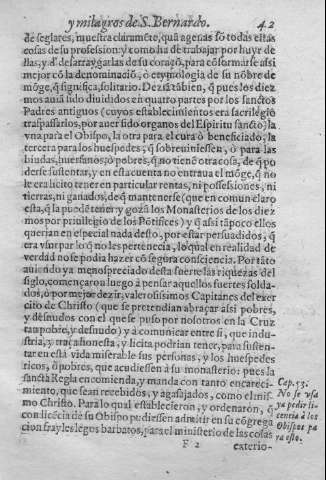 y milagros de S. Bernardo. 42
de seglares, muestra claramẽte, quã agenas sõ todas estas
cosas de su profession: y como ha de trabajar por huyr de
llas, y d' desarraygarlas de su coraçõ, para cõformarse assi
mejor cõ la denominaciõ, ò etymologia de su nõbre de
mõge, q̃ significa, solitario. Deziã tãbien, q̃ pues los diez
mos auiã sido diuididos en quatro partes por los sanctos
Padres antiguos (cuyos establecimientos era sacrilegio
traspassarlos, por auer sido organos del Espiritu sancto) la
vna para el Obispo, la otra para el cura ò beneficiado, la
tercera para los huespedes, q̃ sobreuiniessen, ò para las
biudas, huerfanos, ò pobres, q̃ no tienẽ otra cosa, de q̃ po
derse sustentar, y en esta cuenta no entraua el mõge, q̃ no
le era licito tener en particular rentas, ni possessiones, ni
tierras, ni ganados, de q̃ mantenerse (que en comun claro
esta, q̃ la puedẽ tener y gozã los Monasterios de los diez
mos por priuilegio de los Põtifices) y q̃ assi tãpoco ellos
querian en especial nada desto, por estar persuadidos, q̃
era vsurpar lo q̃ no les pertenecia, lo qual en realidad de
verdad no se podia hazer cõ segura consciencia. Por tãto
auiendo ya menospreciado desta suerte las riquezas del
siglo, començarou luego à pensar aquellos fuertes solda-
dos, ò por mejor dezir, valerosissimos Capitanes del exer
cito de Christo (que se pretendian abraçar assi pobres,
y desnudos con el que se puso por nosotros en la Cruz
tau pobre, y desnudo) y à comunicar entre si, que indu-
stria, y traça honesta, y licita podrian tener, para susten-
tar en està vida miserable sus personas, y los huespedes
ricos, ò pobres, que acudiessen à su monasterio: pues la
sanctà Regla encomienda, y manda con tanto encareci-
miento, que sean recebidos, y agasajados, como el mis-
mo Christo. Para lo qual establecieron, y ordenarõn, q̃
con licẽcia de su Obispo pudiessen admitir en su cõgrega
cion frayles legos barbatos, para el ministerio de las cosas
F 2 exterio-
Cap. 53.
No se vsa
ya pedir li-
cencia à los
Obispos pa
ra esto.